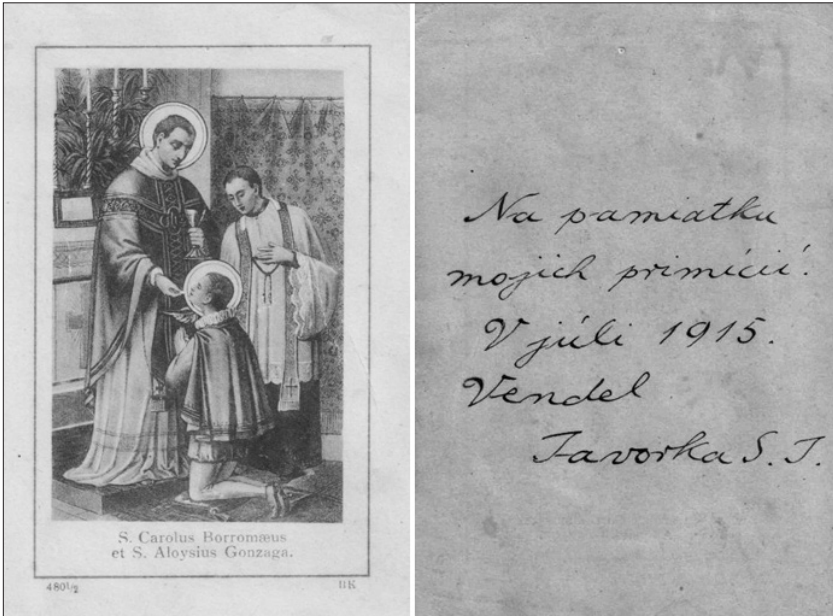 S. Carolus Borromæus
et S. Aloysius Gonzaga.
4801/2
HK
Na pamiatku
mojich primícií.
V júli 1915.
Vendel
Javorka S. J.